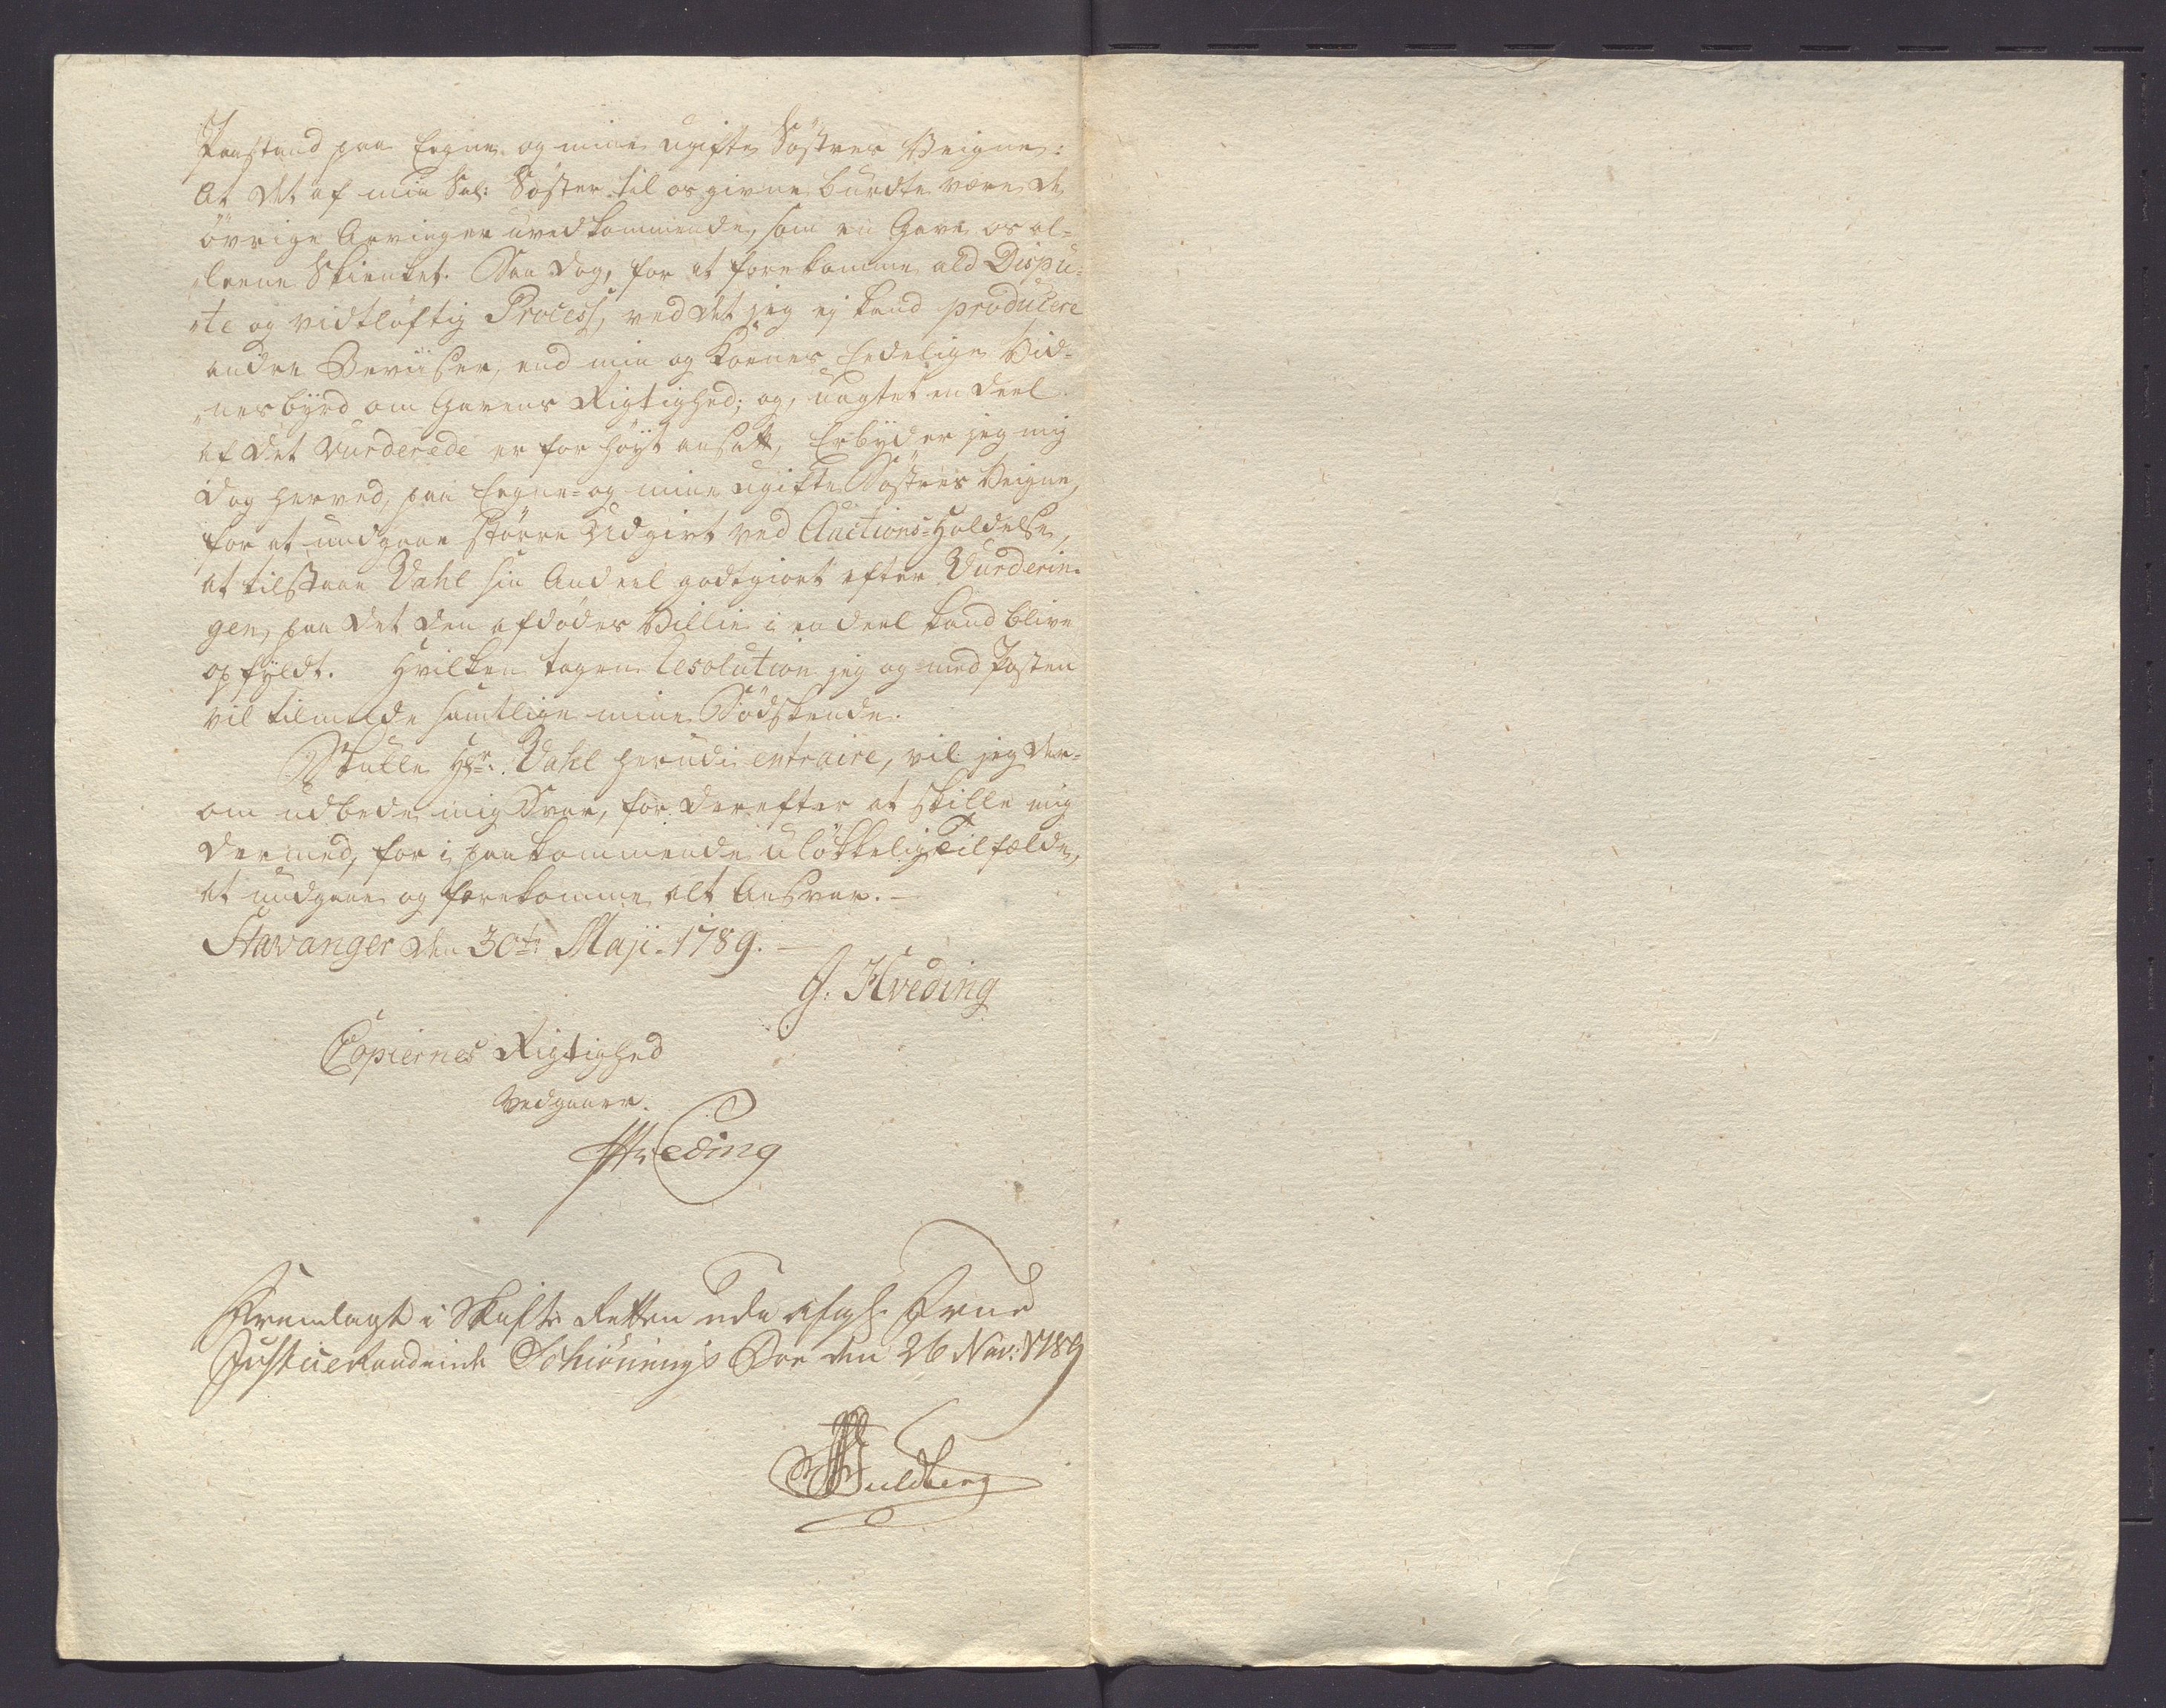 Paastand paa Eegne- og mine ugifte Söstres Veigne:
At det af min Sal: Söster til os givne burdte være de
övrige Arvinger uvedkommende, som en Gave os al-
leene Skienket. Saa dog, for at forekomme ald Dispu-
te og vidtlöftig Process, ved det jeg ej kand producere
andre Beviiser, end min og Konens Eedelige Vid-
nesbyrd om Gavens Rigtighed; og, uagtet en deel
af det Vurderede er for höyt ansatt, Erbyder jeg mig
dog herved, paa Eegne- og mine ugifte Söstres Veigne,
for at undgaae större Udgivt ved Auctions-Holdelse,
at tilstaae Vahl sin Andeel godtgiort efter Vurderin-
gen, paa det den afdödes Villie i en deel kand blive
opfyldt. Hvilken tagne Resolution jeg og med Posten
vil tilmelde samtlige mine Södskende.
Skulle Hr: Vahl herudi entraire, vil jeg der-
om udbede mig Svar, for derefter at skille mig
dermed, for i paakommende ulökkelig Tilfælde,
at undgaae og forekomme alt Ansvar. -
Stavanger den 30te Maji 1789. -
J. Hveding
Copiernes Rigtighed
Vedgaaer.
Hveding
Fremlagt i Skifte Retten udi afgl. Frue
Justice Raadinde Schiönnings Boe den 26 Nov: 1789
Buldberg